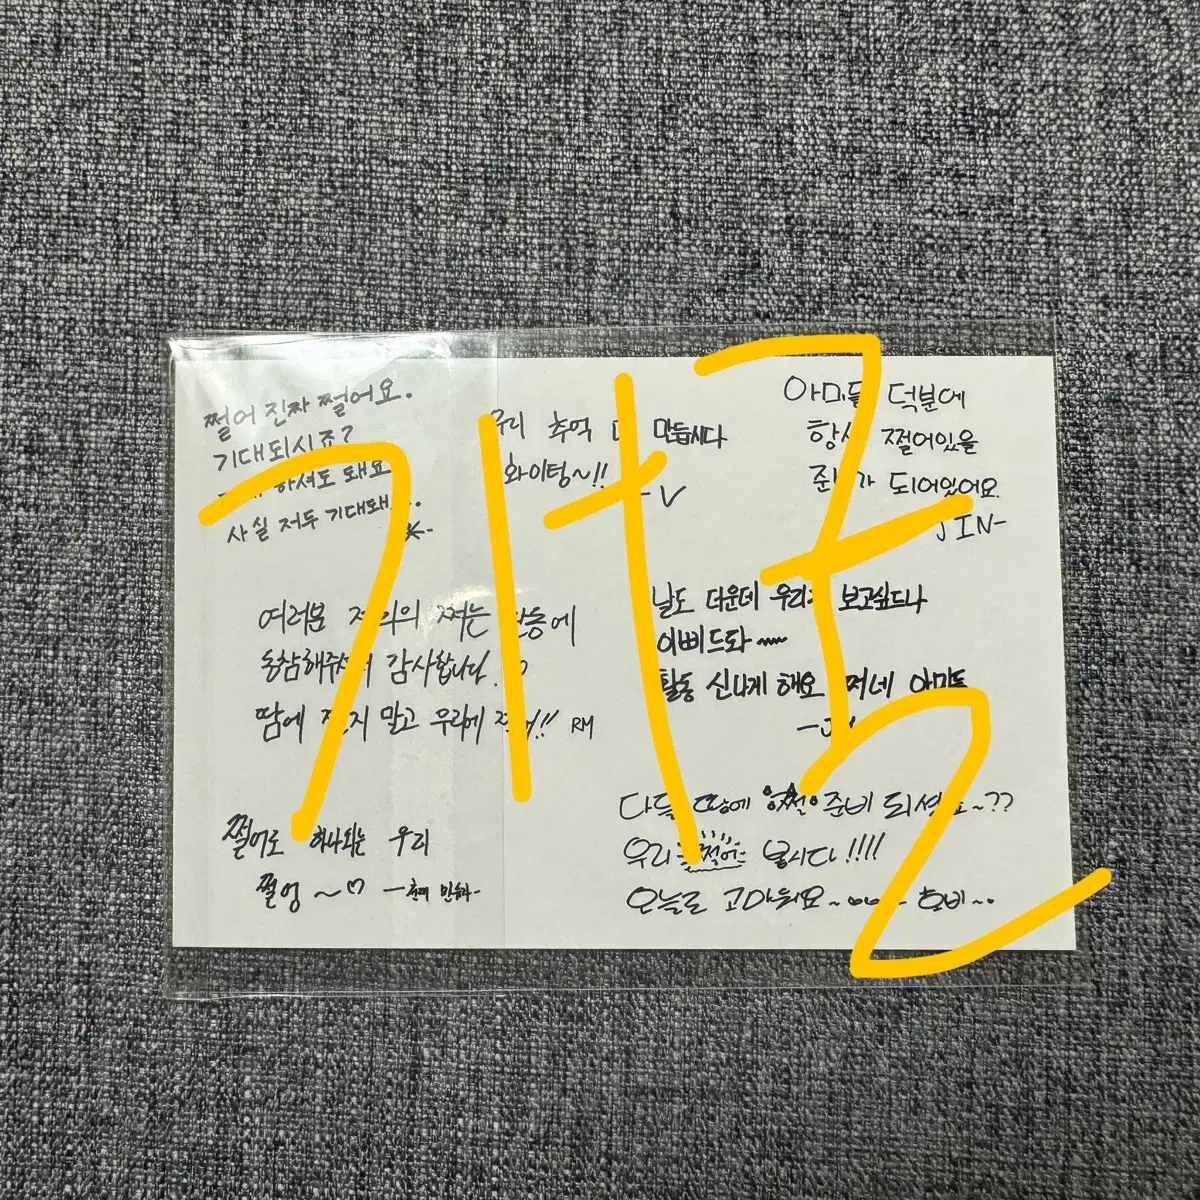 쩔어 진짜 쩔어요.
기대되시죠?
하셔도 돼요
사실 저두 기대돼
우리 추억 만듭시다
화이팅~!!
- V
아미들 덕분에
항상 쩔어있을
준비가 되어있어요.
JIN-
여러분 저희의 쩌는 활동에
동참해주셔서 감사합니다.
땀에 쩔지 말고 우리에 쩔어!! RM
날도 더운데 우리가 보고싶드나
이삐드롸~
활동 신나게 해요
쩔어로 하나되는 우리
쩔엉~♡
다들 준비 되셨죠~??
우리 쩔어 봅시다!!!!
오늘도 고마워요~
개코2